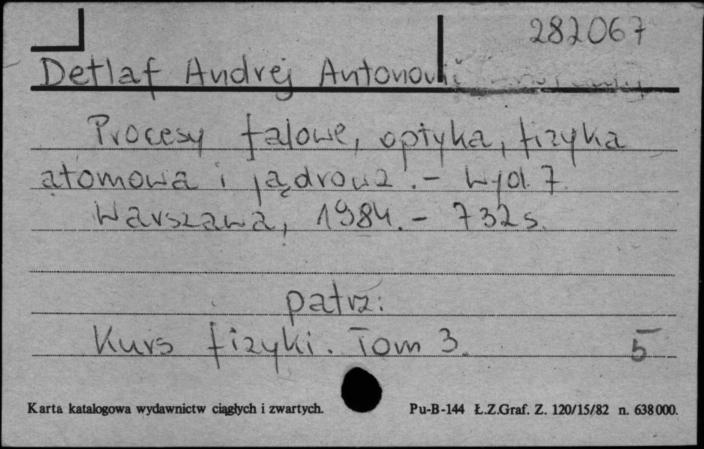 282067
Detlaf Andrej Antonovič
Procesy falowe, optyka, fizyka
atomowa i jądrowa.- Wyd. 7.
Warszawa, 1984.- 732 s.
patrz:
Kurs fizyki. Tom 3.
5
Karta katalogowa wydawnictw ciągłych i zwartych. Pu-B-144 Ł.Z.Graf. Z. 120/15/82 n. 638000.